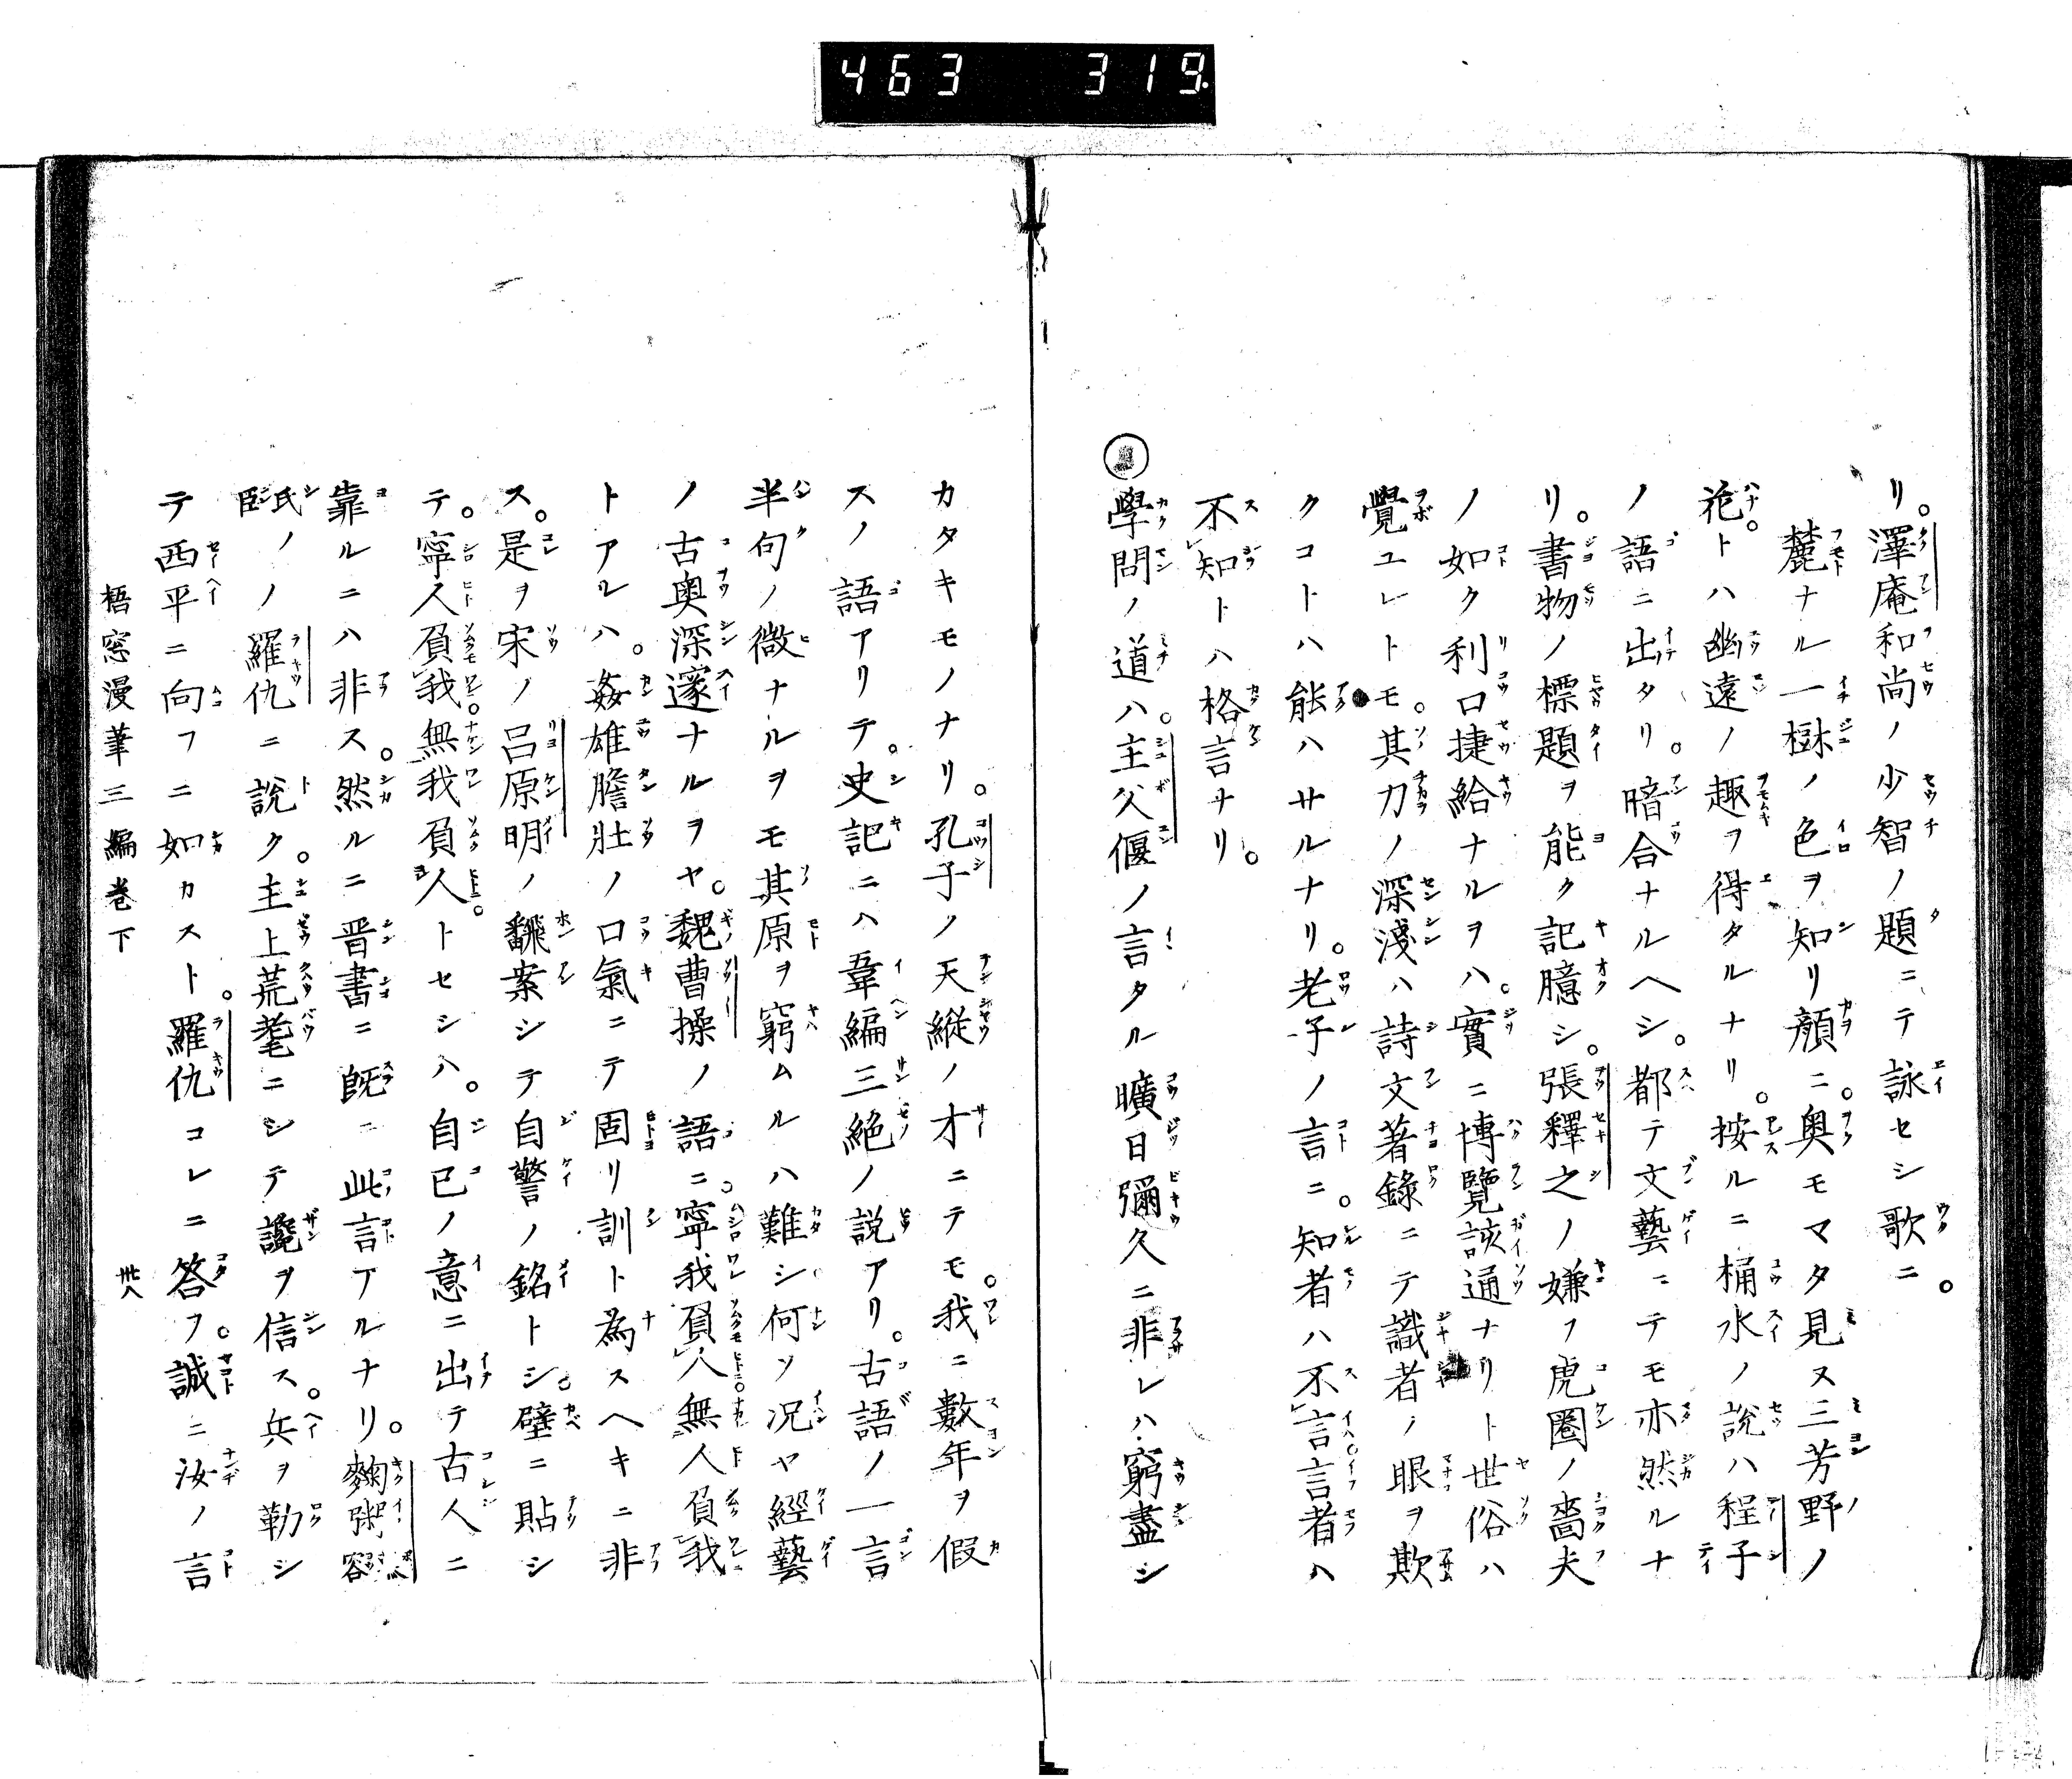 463 319
リ。澤庵和尚ノ少智ノ題ニテ詠セシ歌ニ。
麓ナル一樹ノ色ヲ知リ顔ニ。奥モマタ見ヌ三芳野ノ
花。トハ幽遠ノ趣ヲ得タルナリ。按ルニ桶水ノ說ハ程子
ノ語ニ出タリ。暗合ナルヘシ。都テ文藝ニテモ亦然ルナ
リ。書物ノ標題ヲ能ク記臆シ。張釋之ノ嫌フ虎圈ノ嗇夫
ノ如ク利口捷給ナルヲハ。實ニ博覽該通ナリト世俗ハ
覺ユレトモ。其力ノ深淺ハ詩文著錄ニテ識者ノ眼ヲ欺
クコトハ能ハサルナリ。老子ノ言ニ。知者ハ不言言者ハ
不知トハ格言ナリ。
學問ノ道ハ。主父偃ノ言タル曠日彌久ニ非レハ窮盡シ
カタキモノナリ。孔子ノ天縱ノ才ニテモ。我ニ數年ヲ假
スノ語アリテ。史記ニハ韋編三絶ノ説アリ。古語ノ一言
半句ノ微ナルヲモ其原ヲ窮ムルハ難シ何ソ况ヤ經藝
ノ古奥深邃ナルヲヤ。魏曹操ノ語ニ。寧我負人無人負我
トアルハ。姦雄膽壯ノ口氣ニテ固リ訓ト為スヘキニ非
ス。是ヲ宋ノ呂原明ノ飜案シテ自警ノ銘トシ。壁ニ貼シ
テ。寧人負我無我負人トセシハ。自己ノ意ニ出テ古人ニ
靠ルニハ非ス。然ルニ晋書ニ既ニ此言アルナリ。麴粥容
臣氏ノノ羅仇ニ說ク。主上荒耄ニシテ讒ヲ信ス。兵ヲ勒シ
テ西平ニ向フニ如カスト。羅仇コレニ答フ。誠ニ汝ノ言
梧窓漫筆三編巻下 卅八